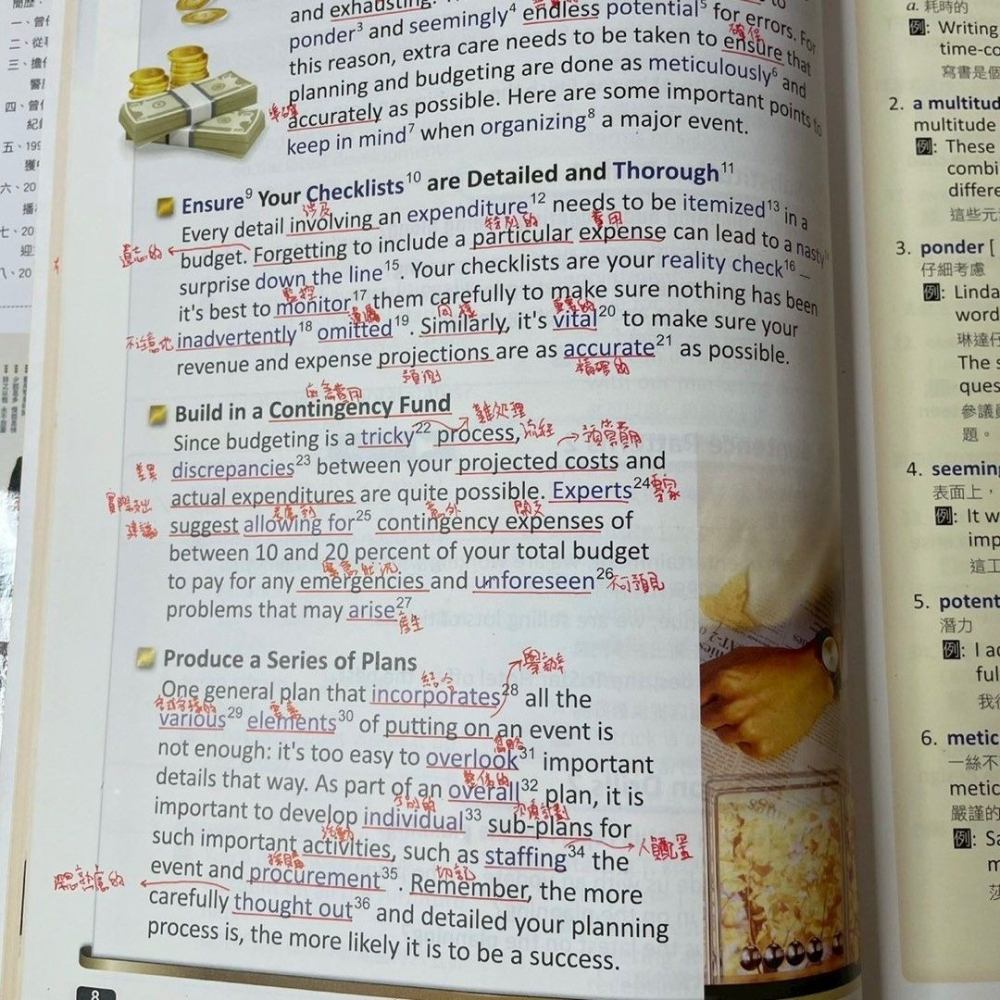 and exhausting.
ponder³ and seemingly⁴ endless potential⁵ for errors. For
this reason, extra care needs to be taken to ensure that
確保
planning and budgeting are done as meticulously⁶ and
準確
accurately as possible. Here are some important points to
keep in mind⁷ when organizing⁸ a major event.
Ensure⁹ Your Checklists¹⁰ are Detailed and Thorough¹¹
涉及
Every detail involving an expenditure¹² needs to be itemized¹³ in a
遺忘的 特別的 費用
budget. Forgetting to include a particular expense can lead to a nasty
surprise down the line¹⁵. Your checklists are your reality check¹⁶ –
監控
it's best to monitor¹⁷ them carefully to make sure nothing has been
不注意地 遺漏 同樣 重要的
inadvertently¹⁸ omitted¹⁹. Similarly, it's vital²⁰ to make sure your
revenue and expense projections are as accurate²¹ as possible.
預測 精確的
應急費用
Build in a Contingency Fund
難處理
Since budgeting is a tricky²² process,
流程 預算費用
差異
discrepancies²³ between your projected costs and
實際支出
actual expenditures are quite possible. Experts²⁴
專家
建議 考慮到 意外 開支
suggest allowing for²⁵ contingency expenses of
between 10 and 20 percent of your total budget
緊急狀況
to pay for any emergencies and unforeseen²⁶
不可預見
problems that may arise²⁷
產生
Produce a Series of Plans
結合 舉辦
One general plan that incorporates²⁸ all the
各式各樣的 要素
various²⁹ elements³⁰ of putting on an event is
忽略
not enough: it's too easy to overlook³¹ important
整體的
details that way. As part of an overall³² plan, it is
個別的 次要計劃
important to develop individual³³ sub-plans for
活動
such important activities, such as staffing³⁴ the
採購 切記
event and procurement³⁵. Remember, the more
carefully thought out³⁶ and detailed your planning
process is, the more likely it is to be a success.
8
a. 耗時的
例: Writing
time-co
寫書是個
2. a multitud
multitude
例: These
combi
differe
這些元
3. ponder [
仔細考慮
例: Linda
word
琳達仔
The s
ques
參議
題。
4. seeming
表面上,
例: It w
imp
這工
5. potent
潛力
例: I a
ful
我
6. metic
一絲不
metic
嚴謹的
例: Sa
m
莎